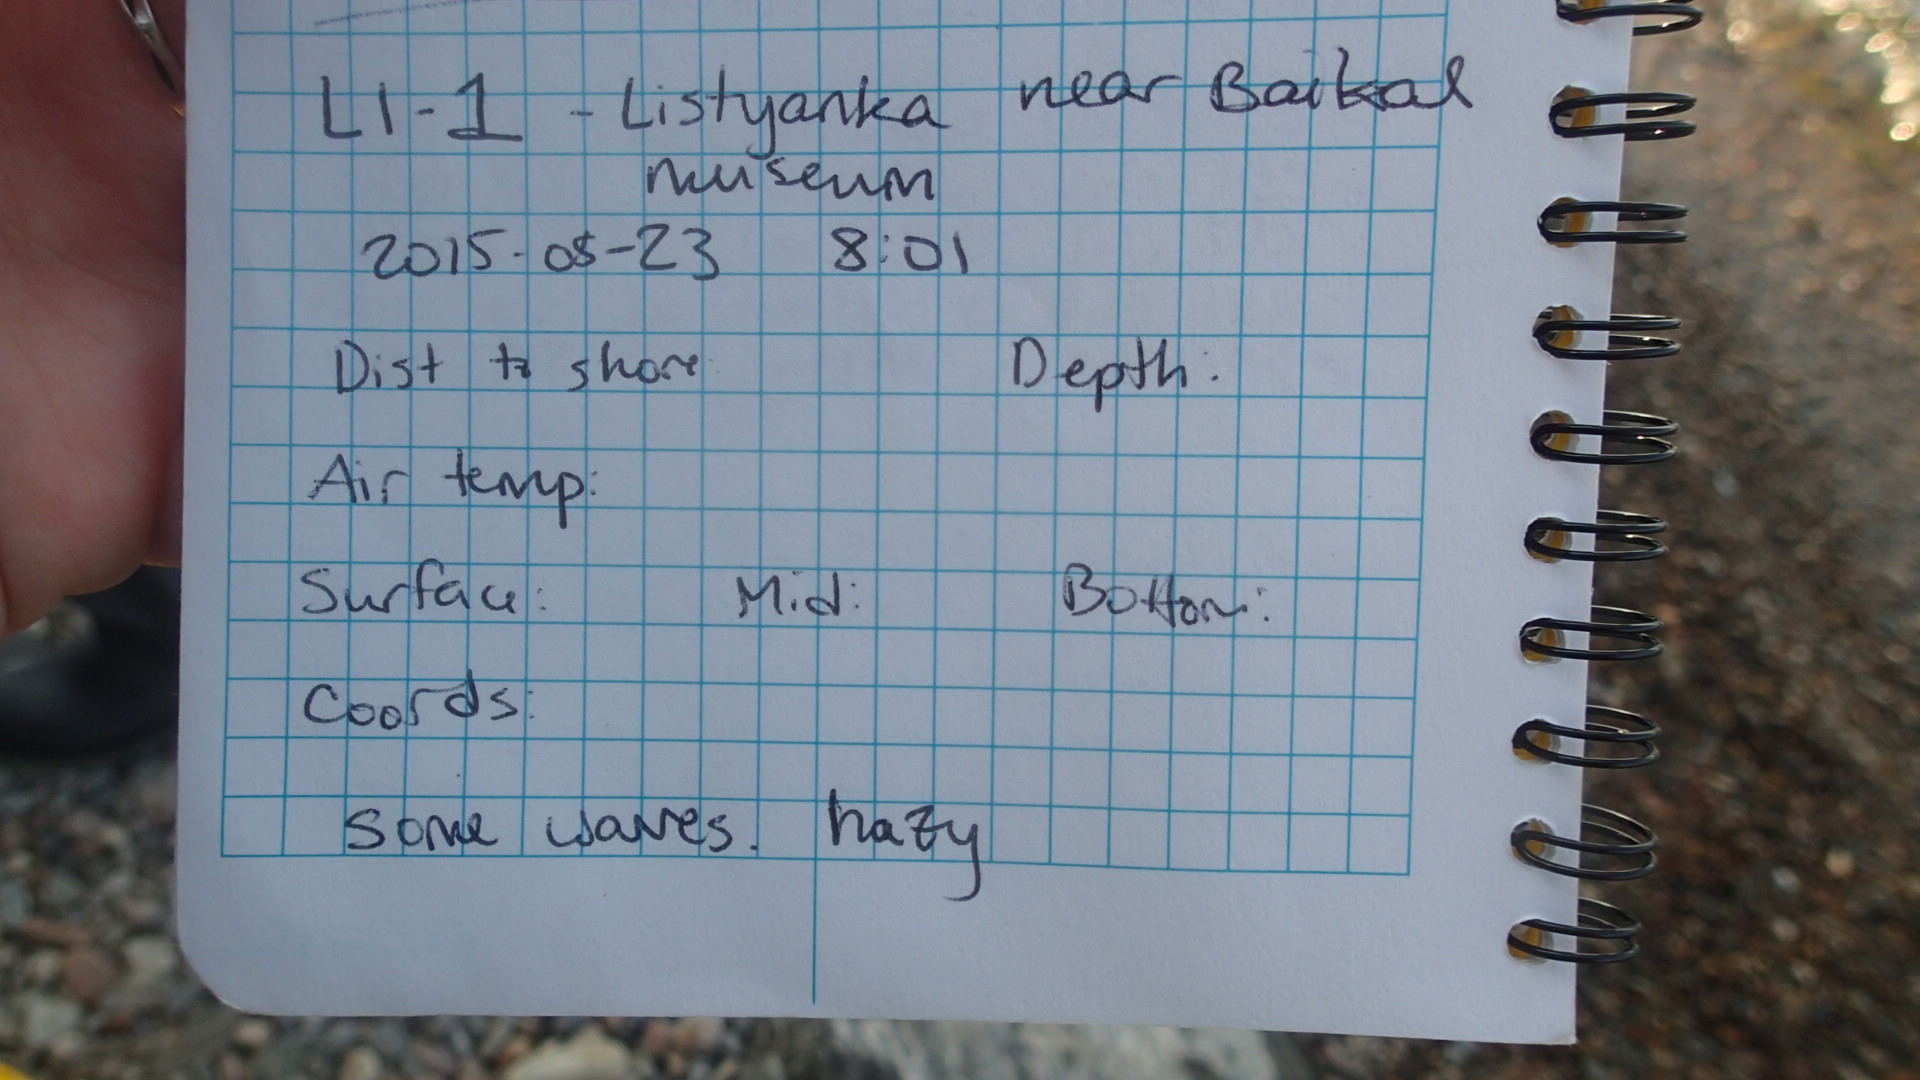 LI-1 - Listyanka near Baikal
museum
2015-05-23 8:01
Dist to shore: Depth:
Air temp:
Surface: Mid: Bottom:
Coords:
Some waves. hazy